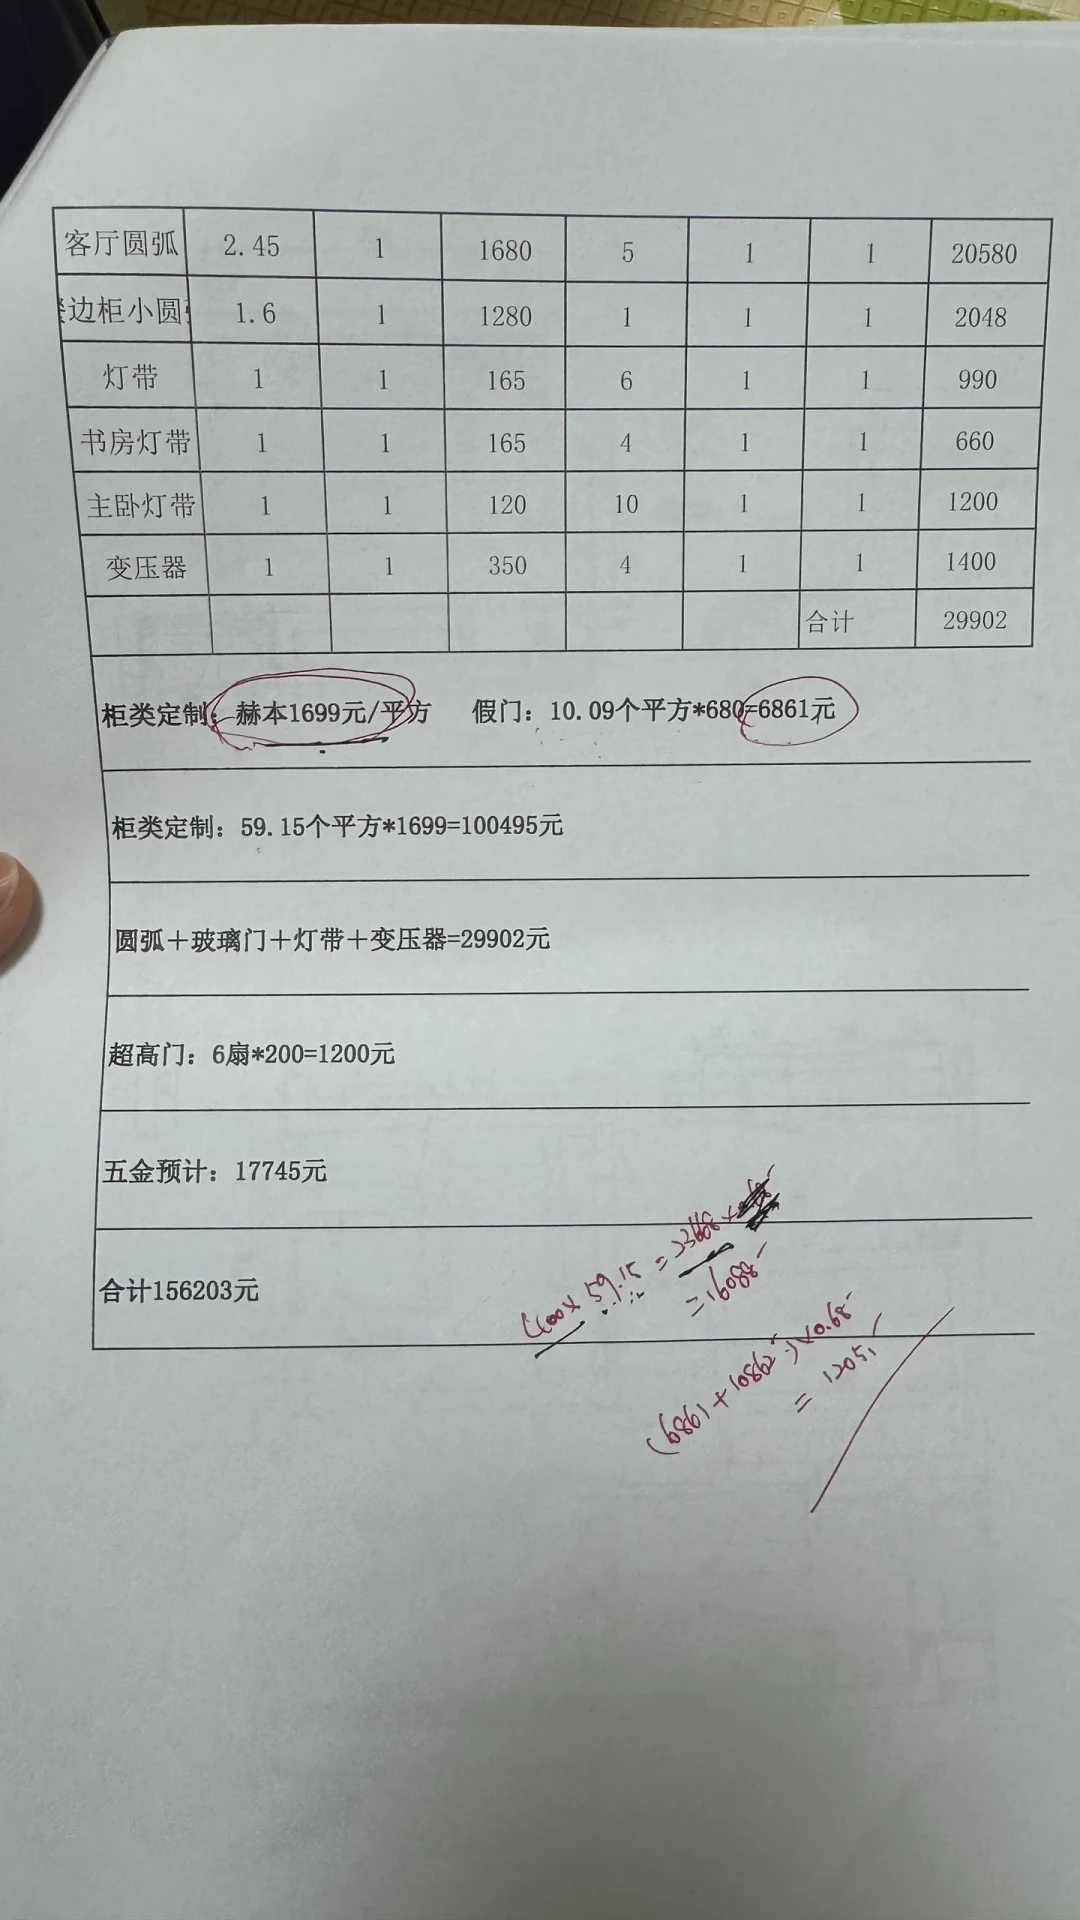 客厅圆弧 2.45 1 1680 5 1 1 20580
边柜小圆 1.6 1 1280 1 1 1 2048
灯带 1 1 165 6 1 1 990
书房灯带 1 1 165 4 1 1 660
主卧灯带 1 1 120 10 1 1 1200
变压器 1 1 350 4 1 1 1400
合计 29902
柜类定制：赫本1699元/平方 假门：10.09个平方*680=6861元
柜类定制：59.15个平方*1699=100495元
圆弧＋玻璃门＋灯带＋变压器=29902元
超高门：6扇*200=1200元
五金预计：17745元
合计156203元
400×59.15=23668×
=16088
(6861+10862)×0.68
=12051